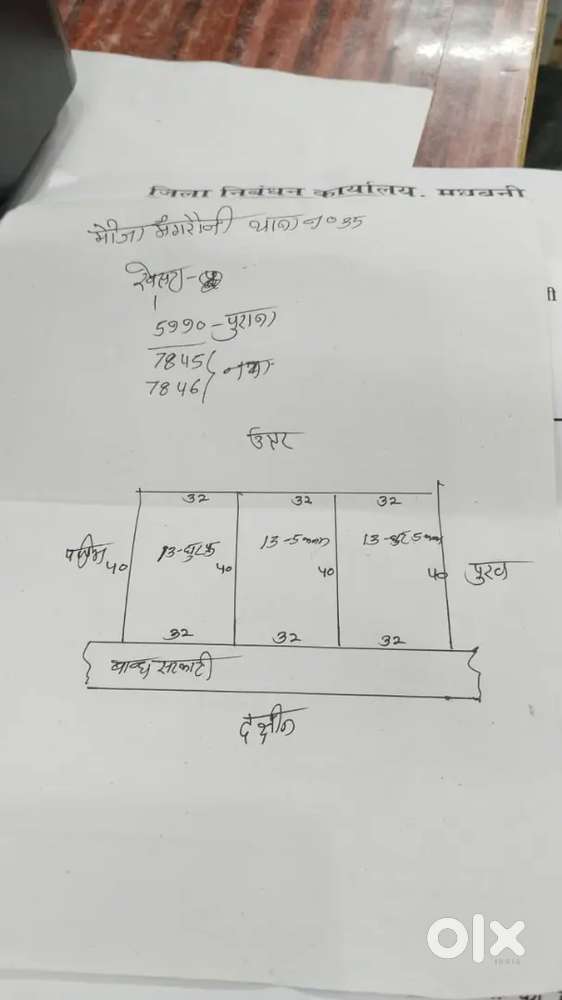 जिला निबंधन कार्यालय, मधुबनी
मौजा मंगरौनी थाना न० 35
खेसरा -
5990 - पुराना
7845
7846 नया
उत्तर
32 32 32
पश्चिम 40 13- 40 13-5 40 13- 5 40 पुरब
32 32 32
बान्ध सरकारी
दक्षीन
olx
INDIA